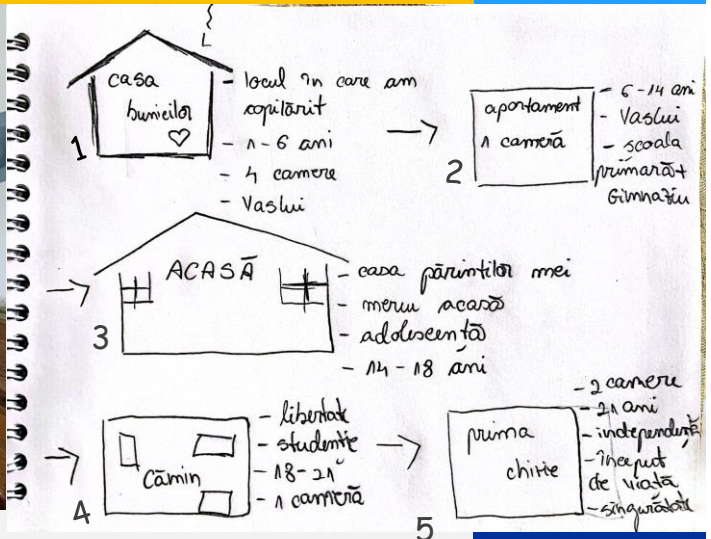 casa
bunicilor
♡
1
- locul în care am
copilărit
- 1-6 ani
- 4 camere
- Vaslui
apartament
1 cameră
2
- 6-14 ani
- Vaslui
- școala
primară+
Gimnaziu
ACASĂ
3
- casa părinților mei
- mereu acasă
- adolescență
- 14-18 ani
Cămin
4
- libertate
- studenție
- 18-21
- 1 cameră
prima
chirie
5
- 2 camere
- 21 ani
- independență
- început
de viață
- singurătate